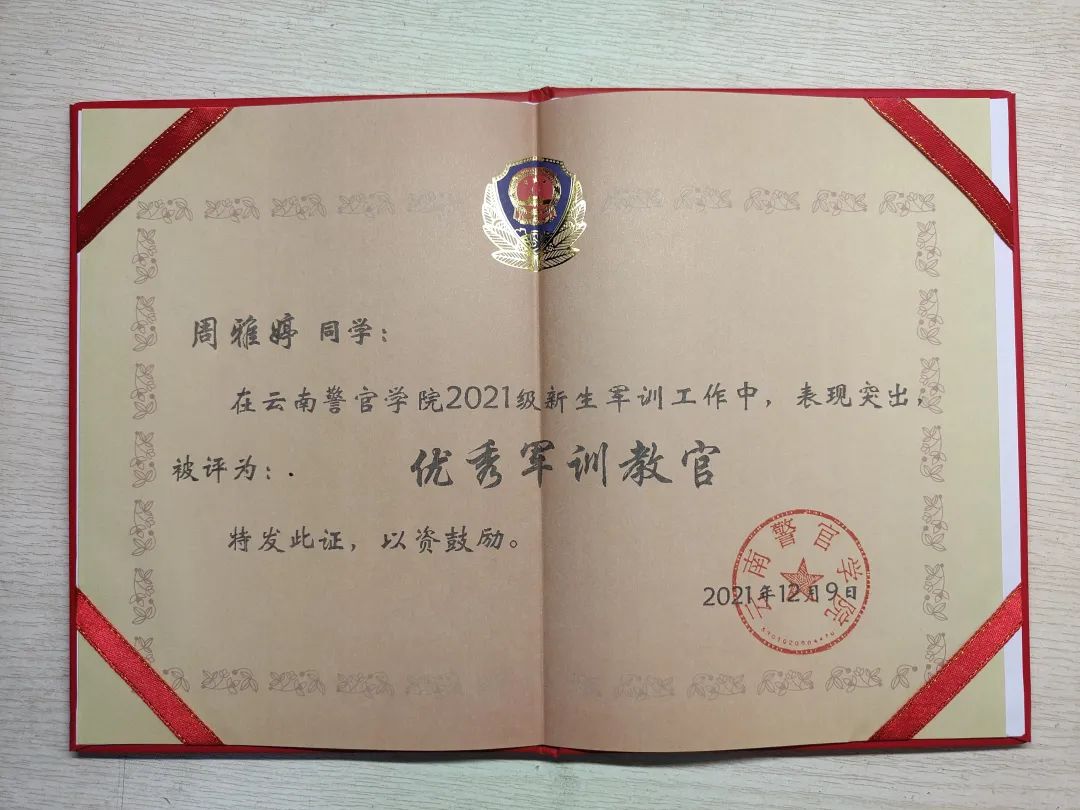 周雅婷 同学：
在云南警官学院2021级新生军训工作中，表现突出，
被评为：. 优秀军训教官
特发此证，以资鼓励。
云南警官学院
2021年12月9日